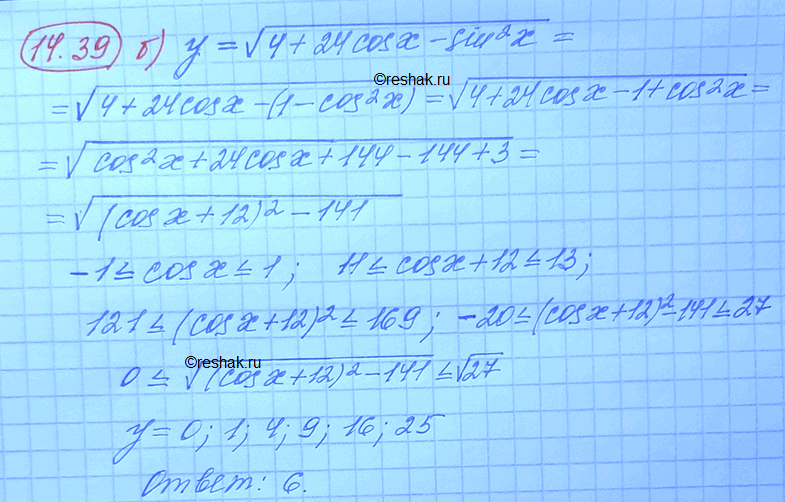 14.39 б) y = √(4 + 24cosx - sin²x) =
©reshak.ru
= √(4 + 24cosx - (1 - cos²x)) = √(4 + 24cosx - 1 + cos²x) =
= √(cos²x + 24cosx + 144 - 144 + 3) =
= √((cosx + 12)² - 141)
-1 ≤ cosx ≤ 1; 11 ≤ cosx + 12 ≤ 13;
121 ≤ (cosx + 12)² ≤ 169; -20 ≤ (cosx + 12)² - 141 ≤ 27
©reshak.ru
0 ≤ √((cosx + 12)² - 141) ≤ √27
y = 0; 1; 4; 9; 16; 25
Ответ: 6.